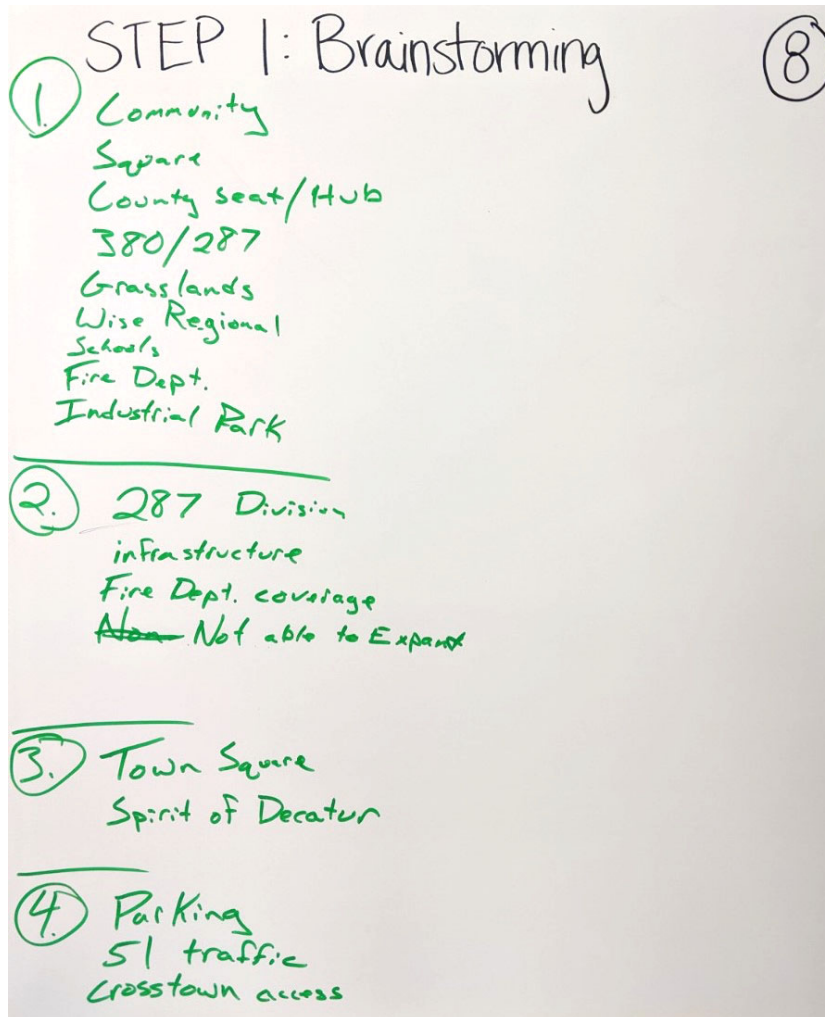 STEP 1: Brainstorming
8
1. Community
Square
County seat/Hub
380/287
Grasslands
Wise Regional
Schools
Fire Dept.
Industrial Park
2. 287 Division
infrastructure
Fire Dept. coverage
Not able to Expand
3. Town Square
Spirit of Decatur
4. Parking
51 traffic
Crosstown access